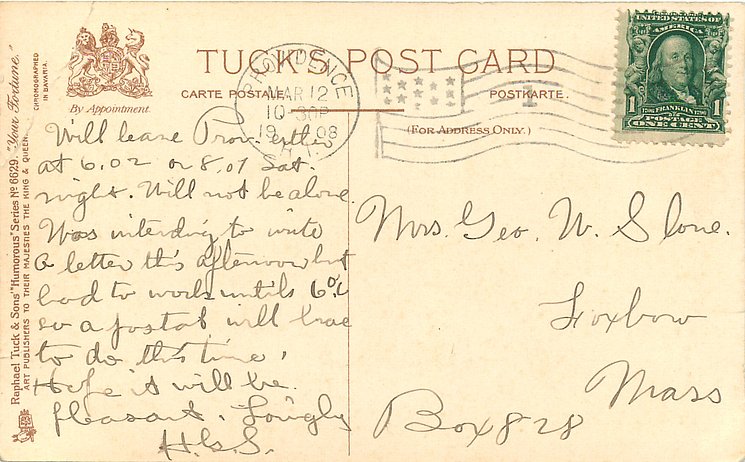 TUCK'S POST CARD
CARTE POSTALE
POSTKARTE.
(FOR ADDRESS ONLY.)
By Appointment.
Raphael Tuck & Sons' "Humorous" Series No 6629. "Your Fortune."
ART PUBLISHERS TO THEIR MAJESTIES THE KING & QUEEN.
CHROMOGRAPHED
IN BAVARIA.
PROVIDENCE
MAR 12
10-30P
1908
R.I.
1
UNITED STATES OF AMERICA
1 FRANKLIN 1
POSTAGE
ONE CENT
Will leave Prov. either
at 6.02 or 8.01 Sat.
night. Will not be alone.
Was intending to write
a letter this afternoon but
had to work until 6
so a postal will have
to do this time.
Hope it will be
pleasant. Lovingly
H.G.S.
Mrs. Geo. W. Slone.
Foxbow
Mass
Box 828